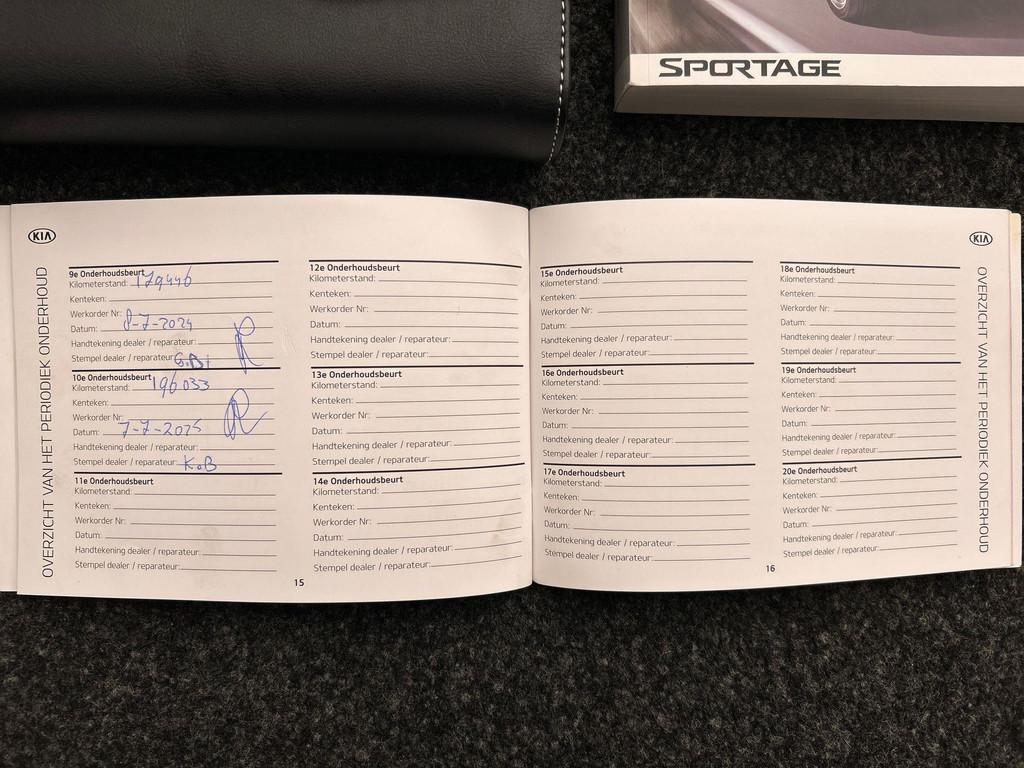 SPORTAGE
KIA
OVERZICHT VAN HET PERIODIEK ONDERHOUD
9e Onderhoudsbeurt
Kilometerstand: 179446
Kenteken:
Werkorder Nr:
Datum: 8-7-2024
Handtekening dealer / reparateur:
Stempel dealer / reparateur:
10e Onderhoudsbeurt
Kilometerstand: 196033
Kenteken:
Werkorder Nr:
Datum: 7-7-2025
Handtekening dealer / reparateur:
Stempel dealer / reparateur: K.B
11e Onderhoudsbeurt
Kilometerstand:
Kenteken:
Werkorder Nr:
Datum:
Handtekening dealer / reparateur:
Stempel dealer / reparateur:
12e Onderhoudsbeurt
Kilometerstand:
Kenteken:
Werkorder Nr:
Datum:
Handtekening dealer / reparateur:
Stempel dealer / reparateur:
13e Onderhoudsbeurt
Kilometerstand:
Kenteken:
Werkorder Nr:
Datum:
Handtekening dealer / reparateur:
Stempel dealer / reparateur:
14e Onderhoudsbeurt
Kilometerstand:
Kenteken:
Werkorder Nr:
Datum:
Handtekening dealer / reparateur:
Stempel dealer / reparateur:
15
15e Onderhoudsbeurt
Kilometerstand:
Kenteken:
Werkorder Nr:
Datum:
Handtekening dealer / reparateur:
Stempel dealer / reparateur:
16e Onderhoudsbeurt
Kilometerstand:
Kenteken:
Werkorder Nr:
Datum:
Handtekening dealer / reparateur:
Stempel dealer / reparateur:
17e Onderhoudsbeurt
Kilometerstand:
Kenteken:
Werkorder Nr:
Datum:
Handtekening dealer / reparateur:
Stempel dealer / reparateur:
18e Onderhoudsbeurt
Kilometerstand:
Kenteken:
Werkorder Nr:
Datum:
Handtekening dealer / reparateur:
Stempel dealer / reparateur:
19e Onderhoudsbeurt
Kilometerstand:
Kenteken:
Werkorder Nr:
Datum:
Handtekening dealer / reparateur:
Stempel dealer / reparateur:
20e Onderhoudsbeurt
Kilometerstand:
Kenteken:
Werkorder Nr:
Datum:
Handtekening dealer / reparateur:
Stempel dealer / reparateur:
16
KIA
OVERZICHT VAN HET PERIODIEK ONDERHOUD